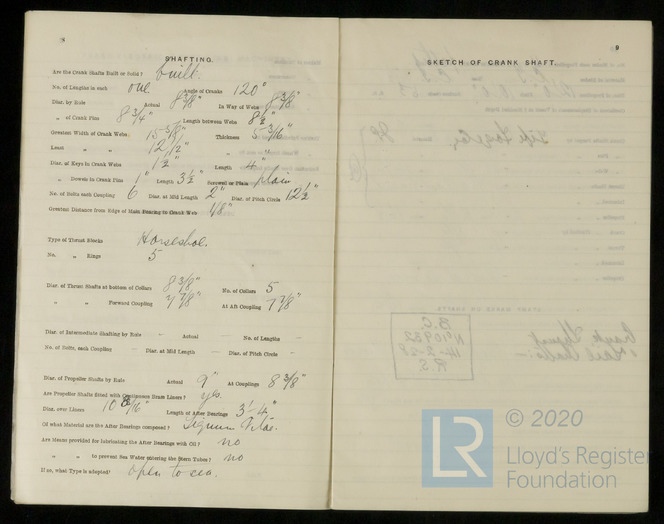 8
SHAFTING.
Are the Crank Shafts Built or Solid? built.
No. of Lengths in each one Angle of Cranks 120°
Diar. by Rule Actual 8 3/8" In Way of Webs 8 3/8"
„ of Crank Pins 8 3/4" Length between Webs 8 1/2"
Greatest Width of Crank Webs 15 5/8" Thickness 5 3/16"
Least „ „ 12 1/2" „ „
Diar. of Keys in Crank Webs 1 1/2" Length 4"
„ Dowels in Crank Pins 1" Length 3 1/2" Screwed or Plain plain
No. of Bolts each Coupling 6 Diar. at Mid Length 2" Diar. of Pitch Circle 12 1/2"
Greatest Distance from Edge of Main Bearing to Crank Web 1/8"
Type of Thrust Blocks Horseshoe.
No. „ Rings 5
Diar. of Thrust Shafts at bottom of Collars 8 3/8" No. of Collars 5
„ „ Forward Coupling 7 7/8" At Aft Coupling 7 7/8"
Diar. of Intermediate Shafting by Rule – Actual – No. of Lengths –
No. of Bolts, each Coupling – Diar. at Mid Length – Diar. of Pitch Circle –
Diar. of Propeller Shafts by Rule Actual 9" At Couplings 8 3/8"
Are Propeller Shafts fitted with Continuous Brass Liners? yes.
Diar. over Liners Length of After Bearings 3'-4"
Of what Material are the After Bearings composed? Lignum Vitae.
Are Means provided for lubricating the After Bearings with Oil? no
„ „ to prevent Sea Water entering the Stern Tubes? no
If so, what Type is adopted? open to sea.
9
SKETCH OF CRANK SHAFT.
© 2020
LR
Lloyd's Register
Foundation